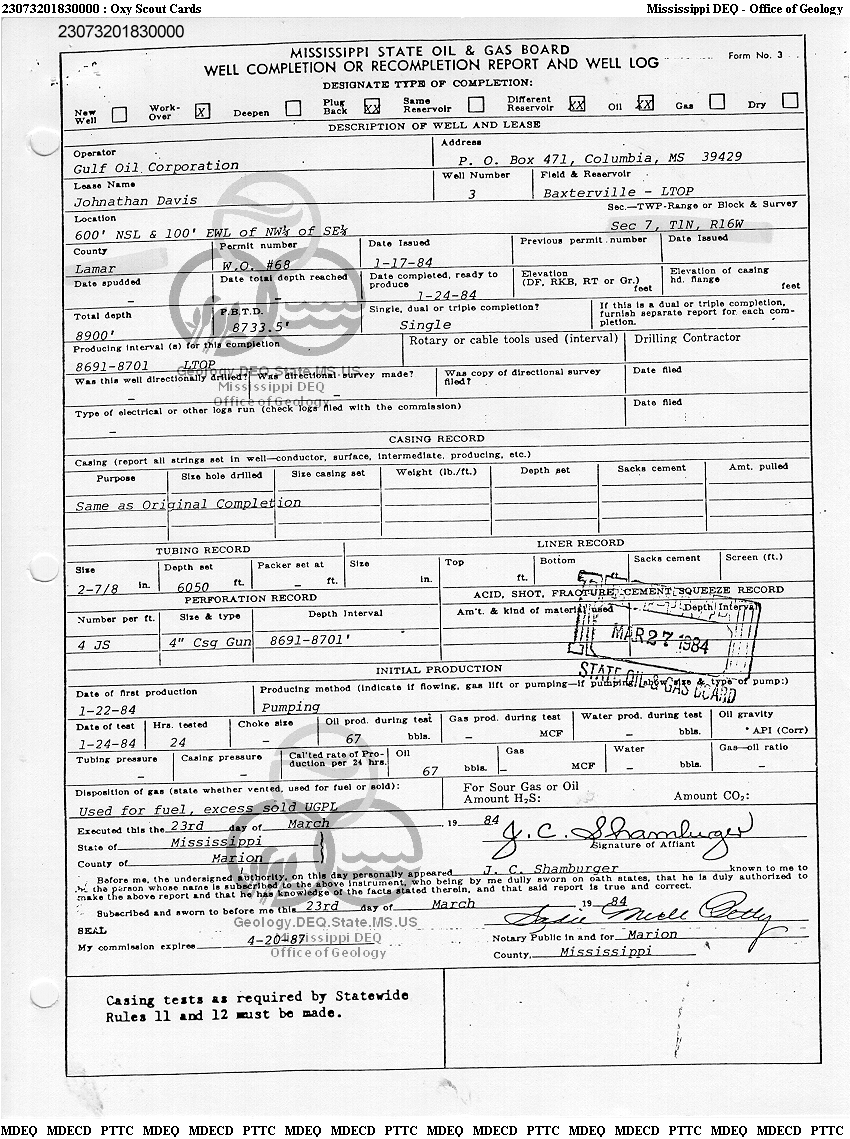 23073201830000 : Oxy Scout Cards Mississippi DEQ - Office of Geology
23073201830000
MISSISSIPPI STATE OIL & GAS BOARD
WELL COMPLETION OR RECOMPLETION REPORT AND WELL LOG Form No. 3
DESIGNATE TYPE OF COMPLETION:
New Well Work-Over X Deepen Plug Back XX Same Reservoir Different Reservoir XX Oil XX Gas Dry
DESCRIPTION OF WELL AND LEASE
Operator Address
Gulf Oil Corporation P. O. Box 471, Columbia, MS 39429
Lease Name Well Number Field & Reservoir
Johnathan Davis 3 Baxterville - LTOP
Location Sec.—TWP-Range or Block & Survey
600' NSL & 100' EWL of NW¼ of SE¼ Sec 7, T1N, R16W
County Permit number Date Issued Previous permit number Date Issued
Lamar W.O. #68 1-17-84
Date spudded Date total depth reached Date completed, ready to produce Elevation (DF, RKB, RT or Gr.) feet Elevation of casing hd. flange feet
- - 1-24-84
Total depth P.B.T.D. Single, dual or triple completion? If this is a dual or triple completion, furnish separate report for each completion.
8900' 8733.5' Single
Producing interval (s) for this completion Rotary or cable tools used (interval) Drilling Contractor
8691-8701 LTOP
Geology.DEQ.State.MS.US
Was this well directionally drilled? Was directional survey made? Was copy of directional survey filed? Date filed
- -
Mississippi DEQ
Office of Geology
Type of electrical or other logs run (check logs filed with the commission) Date filed
-
CASING RECORD
Casing (report all strings set in well—conductor, surface, intermediate, producing, etc.)
Purpose Size hole drilled Size casing set Weight (lb./ft.) Depth set Sacks cement Amt. pulled
Same as Original Completion
TUBING RECORD LINER RECORD
Size Depth set Packer set at Size Top Bottom Sacks cement Screen (ft.)
2-7/8 in. 6050 ft. - ft. in. ft.
PERFORATION RECORD ACID, SHOT, FRACTURE, CEMENT SQUEEZE RECORD
Number per ft. Size & type Depth Interval Am't. & kind of material used Depth Interval
4 JS 4" Csg Gun 8691-8701'
MAR 27 1984
STATE OIL & GAS BOARD
INITIAL PRODUCTION
Date of first production Producing method (indicate if flowing, gas lift or pumping—if pumping, show size & type of pump:)
1-22-84 Pumping
Date of test Hrs. tested Choke size Oil prod. during test Gas prod. during test Water prod. during test Oil gravity
1-24-84 24 - 67 bbls. - MCF - bbls. ° API (Corr)
Tubing pressure Casing pressure Cal'ted rate of Production per 24 hrs. Oil Gas Water Gas—oil ratio
- - 67 bbls. - MCF - bbls. -
Disposition of gas (state whether vented, used for fuel or sold): For Sour Gas or Oil
Used for fuel, excess sold UGPL Amount H₂S: Amount CO₂:
Executed this the 23rd day of March, 19 84
State of Mississippi J. C. Shamburger
Signature of Affiant
County of Marion
Before me, the undersigned authority, on this day personally appeared J. C. Shamburger known to me to
be the person whose name is subscribed to the above instrument, who being by me duly sworn on oath states, that he is duly authorized to
make the above report and that he has knowledge of the facts stated therein, and that said report is true and correct.
Subscribed and sworn to before me this 23rd day of March 19 84
Geology.DEQ.State.MS.US
SEAL
My commission expires 4-20-87 Notary Public in and for Marion
Mississippi DEQ
Office of Geology
County, Mississippi
Casing tests as required by Statewide
Rules 11 and 12 must be made.
MDEQ MDECD PTTC MDEQ MDECD PTTC MDEQ MDECD PTTC MDEQ MDECD PTTC MDEQ MDECD PTTC MDEQ MDECD PTTC